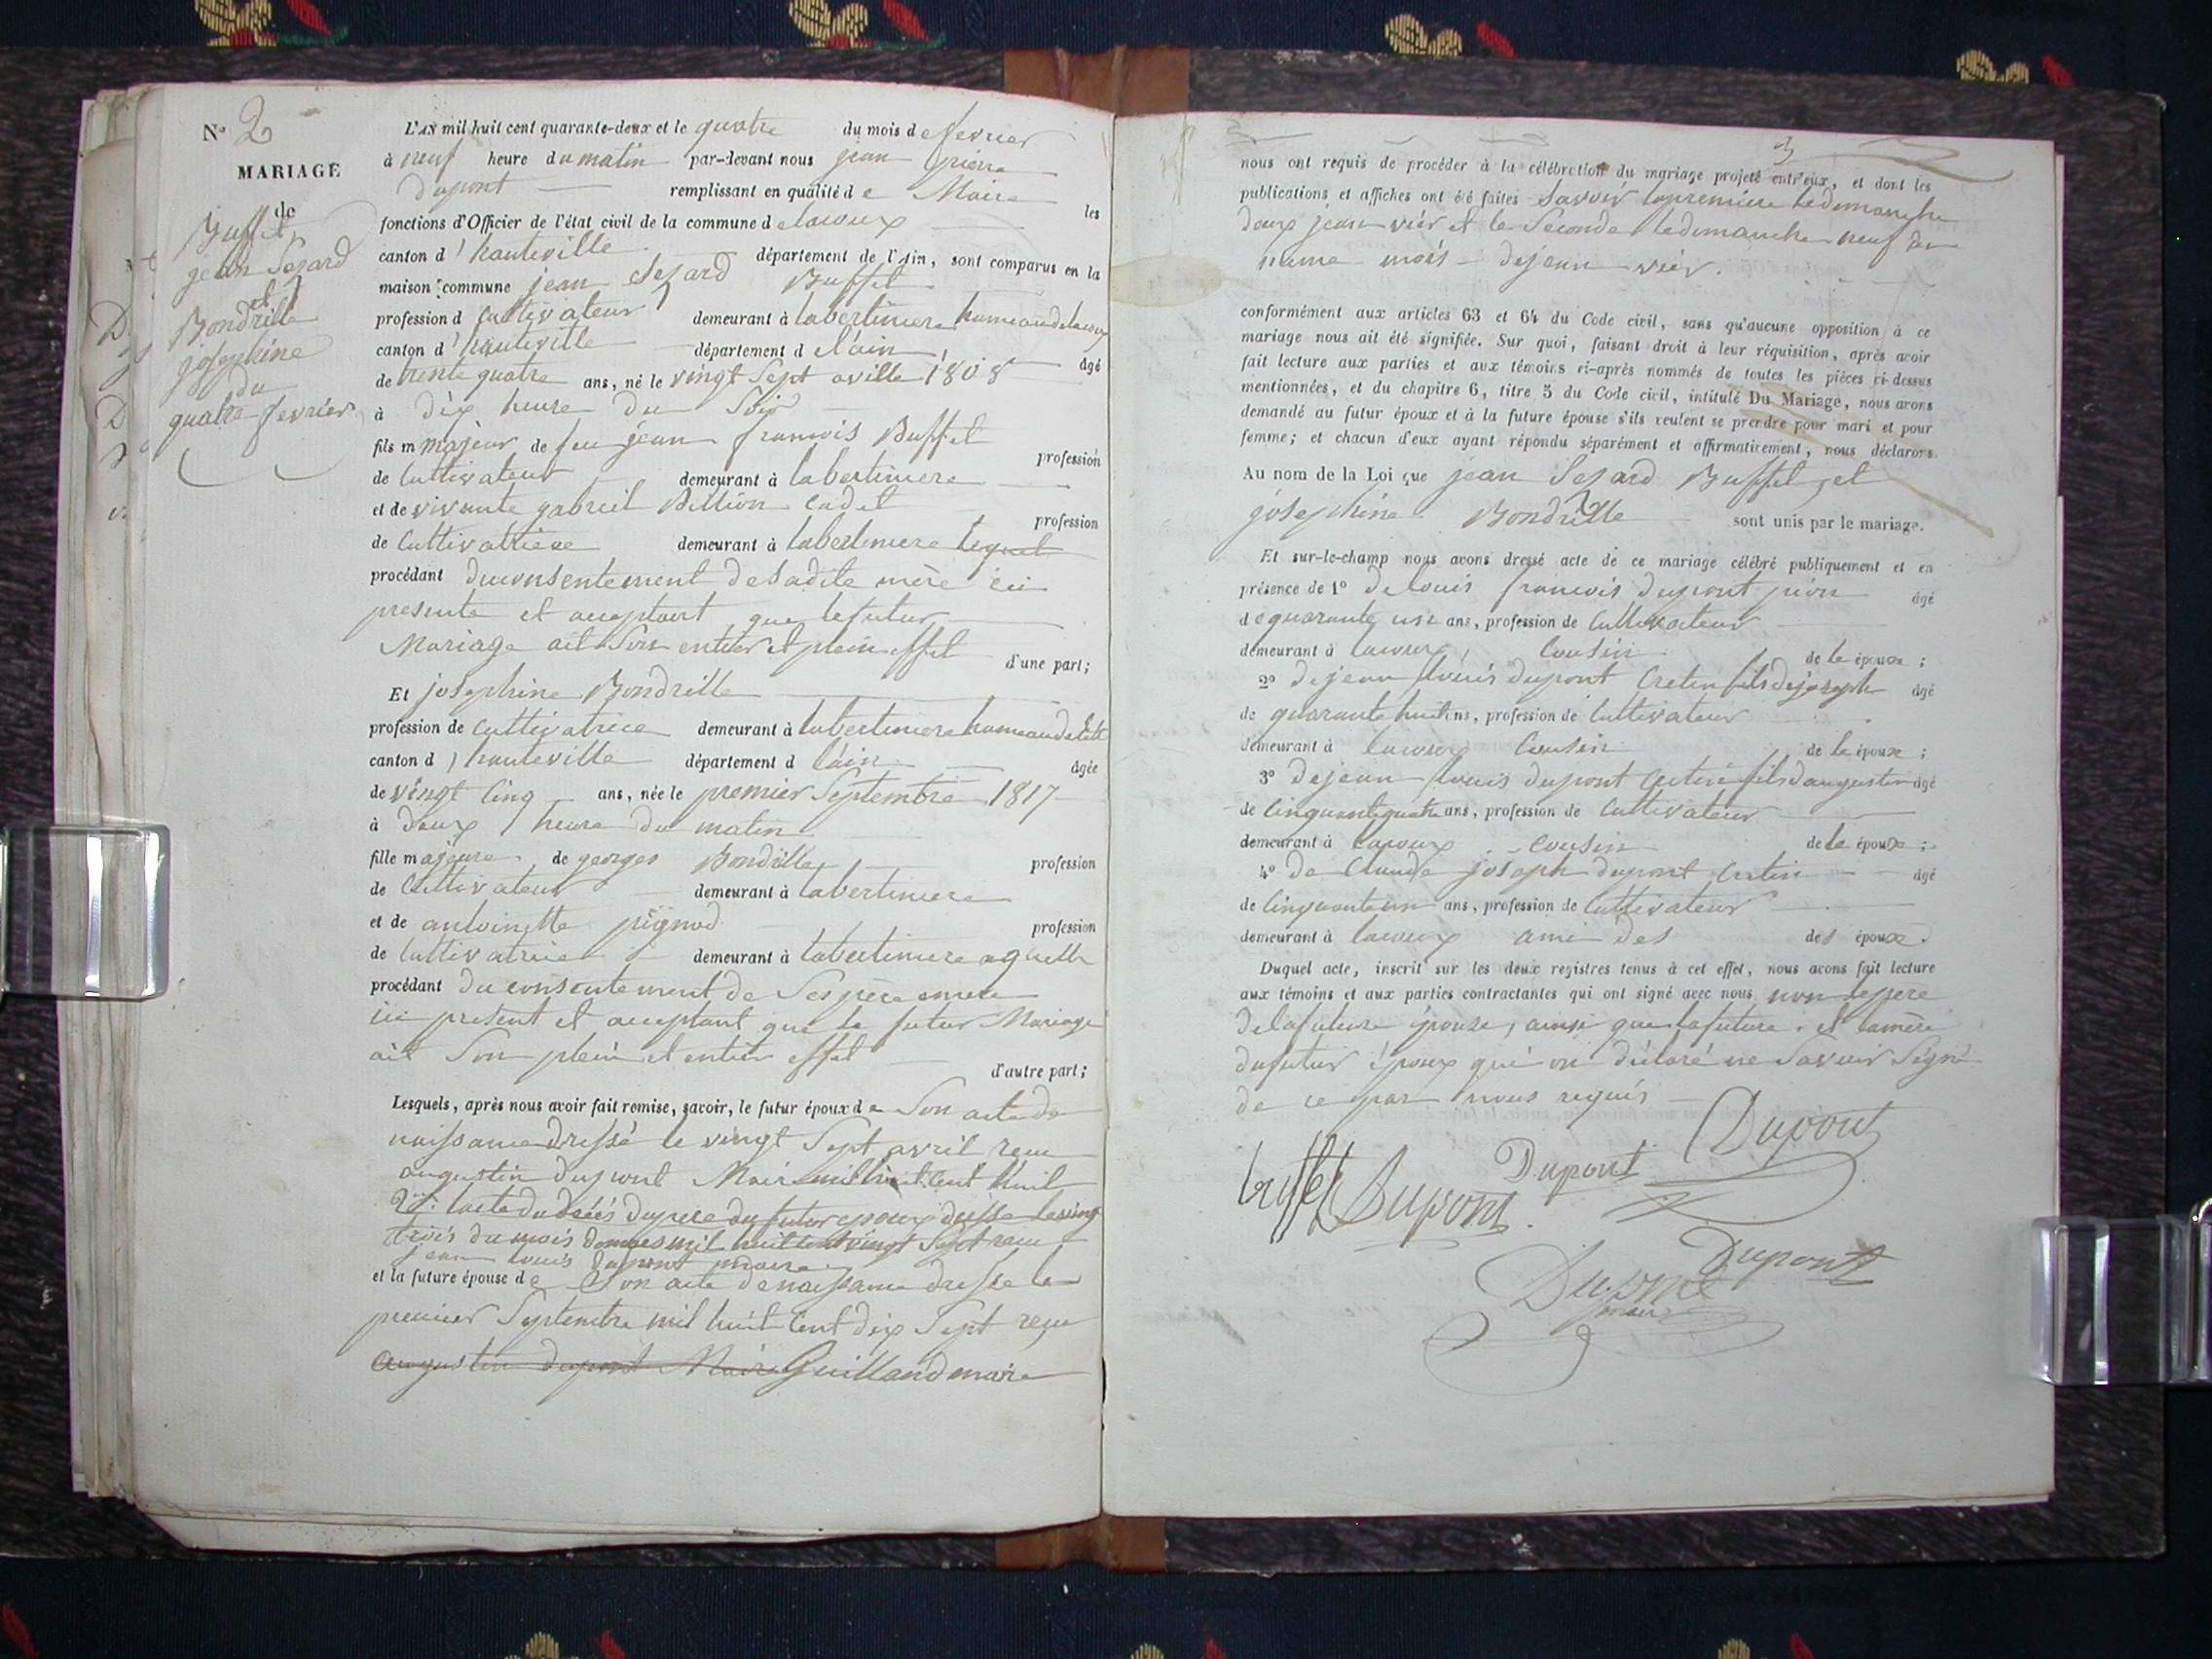 N° 2
MARIAGE
de
Buffet
jean Sezard
et
Bondrille
josephine
du
quatre fevrier
L'AN mil huit cent quarante-deux et le quatre du mois de fevrier
à neuf heure du matin par-devant nous jean pierre
dupont remplissant en qualité de Maire les
fonctions d'Officier de l'état civil de la commune de lacoux
canton d'hauteville département de l'Ain, sont comparus en la
maison commune jean Sezard Buffet
profession d cultivateur demeurant à labertiniere hameau de lacoux
canton d'hauteville département d e l'ain âgé
de trente quatre ans, né le vingt Sept aville 1808
à dix heure du Soir
fils majeur de feu jean francois Buffet profession
de Cultivateur demeurant à labertiniere
et de vivante gabriel Billion Cadet profession
de Cultivattrice demeurant à labertiniere lequel
procédant du consentement de Sadite mère ici
presente et acceptant que le futur
Mariage ait Son entier et plein effet d'une part;
Et josephine Bondrille
profession de cultivatrice demeurant à labertiniere hameau de
canton d'hauteville département d l'ain âgée
de vingt Cinq ans, née le premier Septembre 1817
à deux heure du matin
fille majeure de georges Bondrille profession
de Cultivateur demeurant à labertiniere
et de antoinette pignod profession
de Cultivatrice demeurant à labertiniere aquelle
procédant du consentement de Ses père emere
ici present et acceptant que le futur Mariage
ait Son plein et entier effet d'autre part;
Lesquels, après nous avoir fait remise, savoir, le futur époux d e Son acte de
naissance dressé le vingt Sept avril recu
augustin dupont Maire mil huit Cent huit
2°: lacte du décés du pere du futur epoux dresse le vingt
trois du mois de mars mil huit cent vingt Sept recu
jean louis dupont maire
et la future épouse d e Son acte de naissance dresse le
premier Septembre mil huit Cent dix Sept reçu
augustin dupont Maire Guilland maire
3
nous ont requis de procéder à la célébration du mariage projeté entr'eux, et dont les
publications et affiches ont été faites Savoir lapremiere ledimanche
deux jeanvier et le Seconde ledimanche neuf du
meme mois dejeanvier.
conformément aux articles 63 et 64 du Code civil, sans qu'aucune opposition à ce
mariage nous ait été signifiée. Sur quoi, faisant droit à leur réquisition, après avoir
fait lecture aux parties et aux témoins ci-après nommés de toutes les pièces ci-dessus
mentionnées, et du chapitre 6, titre 5 du Code civil, intitulé Du Mariage, nous avons
demandé au futur époux et à la future épouse s'ils veulent se prendre pour mari et pour
femme; et chacun d'eux ayant répondu séparément et affirmativement, nous déclarons
Au nom de la Loi que jean Sezard Buffet, et
josephine Bondrille sont unis par le mariage.
Et sur-le-champ nous avons dressé acte de ce mariage célébré publiquement et en
présence de 1° de louis francois dupont pion âgé
de quarante un ans, profession de Cultivateur
demeurant à lacoux, Cousin de le épouse;
2° dejean louis dupont Cretin fils dejoseph âgé
de quarante huit ans, profession de Cultivateur
demeurant à lacoux Cousin de le épouse;
3° dejean louis dupont Cretin fils daugustin âgé
de Cinquante quatre ans, profession de Cultivateur
demeurant à lacoux Cousin de le épouse;
4° de Claude joseph dupont Cretin âgé
de Cinquante un ans, profession de Cultivateur
demeurant à lacoux ami des des épouse.
Duquel acte, inscrit sur les deux registres tenus à cet effet, nous avons fait lecture
aux témoins et aux parties contractantes qui ont signé avec nous non le pere
delafuture épouse, ainsi que lafuture. et lamère
dufutur époux qui on déclaré ne Savoir Signé
de ce par nous requis
Dupont
Dupont
buffet Dupont
Dupont
Dupont
maire